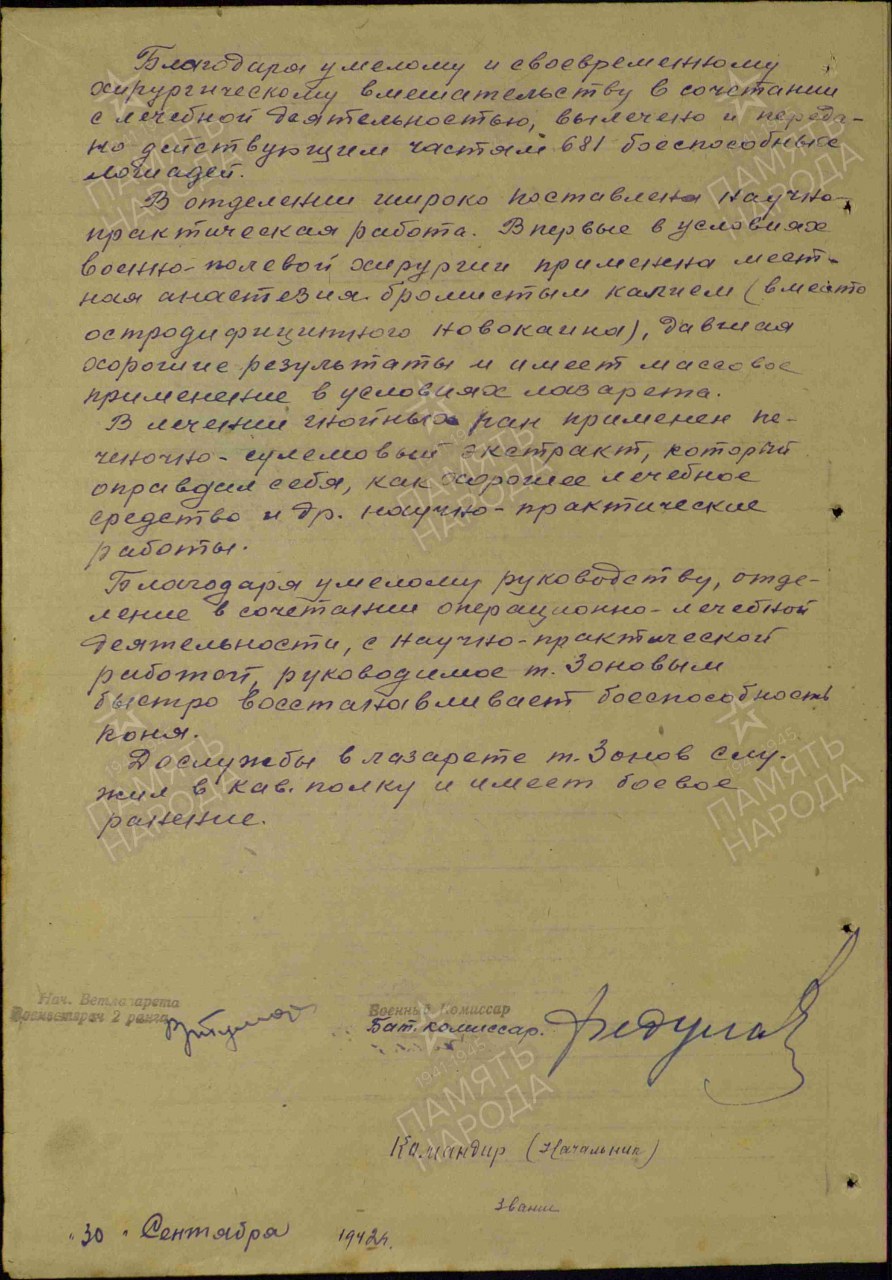 Благодаря умелому и своевременному
хирургическому вмешательству в сочетании
с лечебной деятельностью, вылечено и переда-
но действующим частям 681 боеспособные
лошадей.
В отделении широко поставлена научно-
практическая работа. Впервые в условиях
военно-полевой хирургии применена мест-
ная анастезия бромистым калием (вместо
остродифицитного новокаина), давшая
хорошие результаты и имеет массовое
применение в условиях лазарета.
В лечении гнойных ран применен пе-
ченочно-сулемовый экстракт, который
оправдал себя, как хорошее лечебное
средство и др. научно-практические
работы.
Благодаря умелому руководству, отде-
ление в сочетании операционно-лечебной
деятельности, с научно-практической
работой, руководимое т. Зоновым
быстро восстанавливает боеспособность
коня.
До службы в лазарете т. Зонов слу-
жил в кав. полку и имеет боевое
ранение.
Нач. Ветлазарета
Военветврач 2 ранга
Военный Комиссар
Бат. комиссар.
Командир (Начальник)
Звание
"30" Сентября 1942 г.
ПАМЯТЬ
НАРОДА
1941-1945